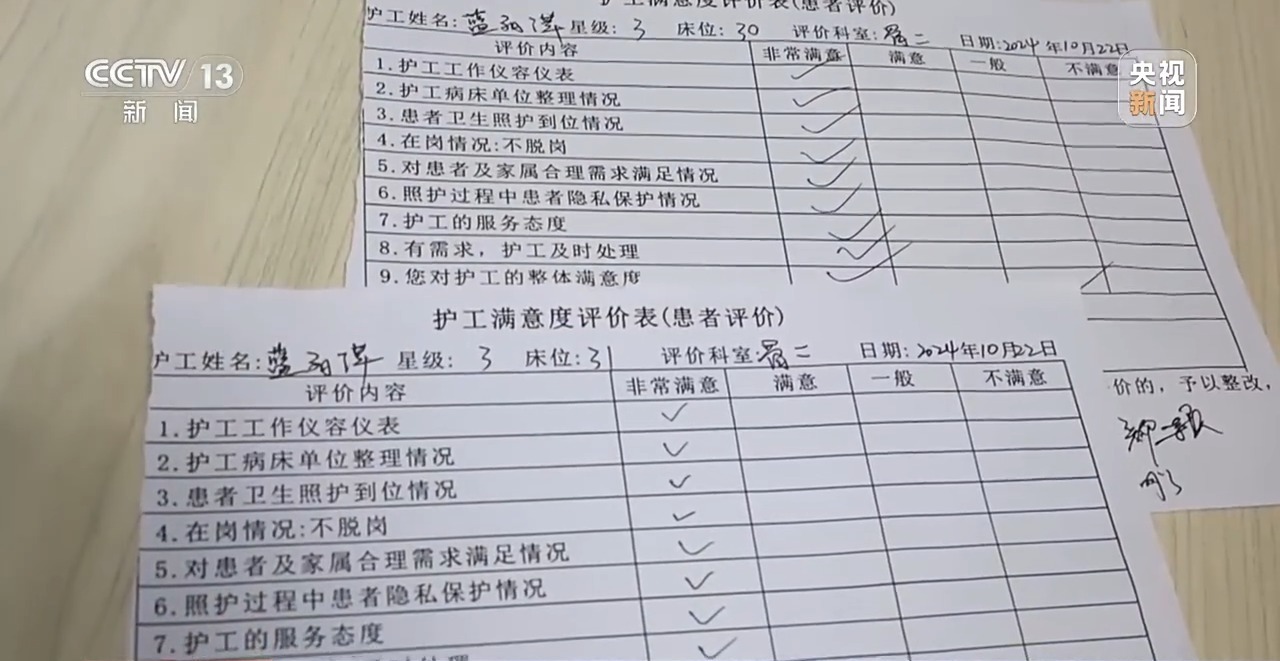 护工满意度评价表(患者评价)
护工姓名: 星级: 3 床位: 30 评价科室: 胃二 日期: 2024年10月22日
评价内容 非常满意 满意 一般 不满意
1.护工工作仪容仪表
2.护工病床单位整理情况
3.患者卫生照护到位情况
4.在岗情况:不脱岗
5.对患者及家属合理需求满足情况
6.照护过程中患者隐私保护情况
7.护工的服务态度
8.有需求，护工及时处理
9.您对护工的整体满意度
CCTV 13
新闻
央视
新闻
护工满意度评价表(患者评价)
护工姓名: 星级: 3 床位: 31 评价科室: 胃二 日期: 2024年10月22日
评价内容 非常满意 满意 一般 不满意
1.护工工作仪容仪表
2.护工病床单位整理情况
3.患者卫生照护到位情况
4.在岗情况:不脱岗
5.对患者及家属合理需求满足情况
6.照护过程中患者隐私保护情况
7.护工的服务态度
价的，予以整改，